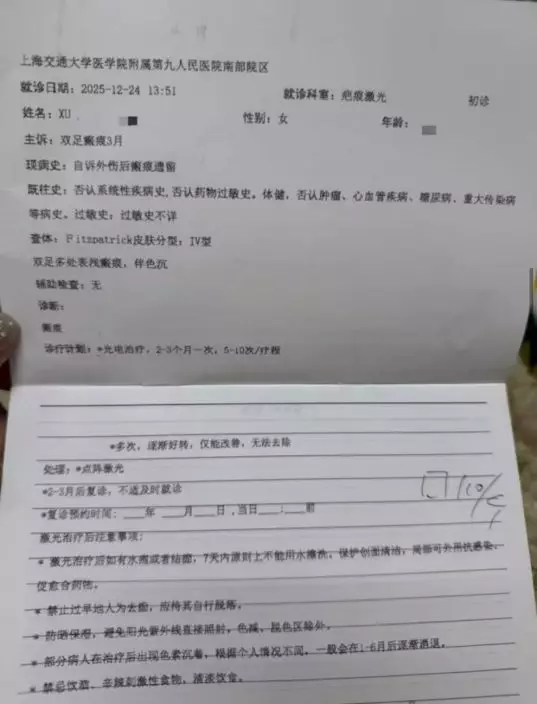 上海交通大学医学院附属第九人民医院南部院区
就诊日期: 2025-12-24 13:51 就诊科室: 疤痕激光 初诊
姓名: XU 性别: 女 年龄:
主诉: 双足瘢痕3月
现病史: 自诉外伤后瘢痕遗留
既往史: 否认系统性疾病史, 否认药物过敏史。体健, 否认肿瘤、心血管疾病、糖尿病、重大传染病
等病史。过敏史: 过敏史不详
查体: Fitzpatrick皮肤分型: IV型
双足多处表浅瘢痕, 伴色沉
辅助检查: 无
诊断:
瘢痕
诊疗计划: *光电治疗, 2-3个月一次, 5-10次/疗程
*多次, 逐渐好转, 仅能改善, 无法去除
处理: *点阵激光
*2-3月后复诊, 不适及时就诊
*复诊预约时间: ____年 ____月____日 ,当日____:____前
激光治疗后注意事项:
* 激光治疗后如有水疱或者结痂, 7天内原则上不能用水擦洗, 保护创面清洁, 局部可外用抗感染、
促愈合药物。
* 禁止过早地人为去痂, 应待其自行脱落。
* 防晒保湿, 避免阳光紫外线直接照射, 色减、脱色区除外。
* 部分病人在治疗后出现色素沉着, 根据个人情况不同, 一般会在1-6月后逐渐消退。
* 禁忌饮酒、辛辣刺激性食物, 清淡饮食。